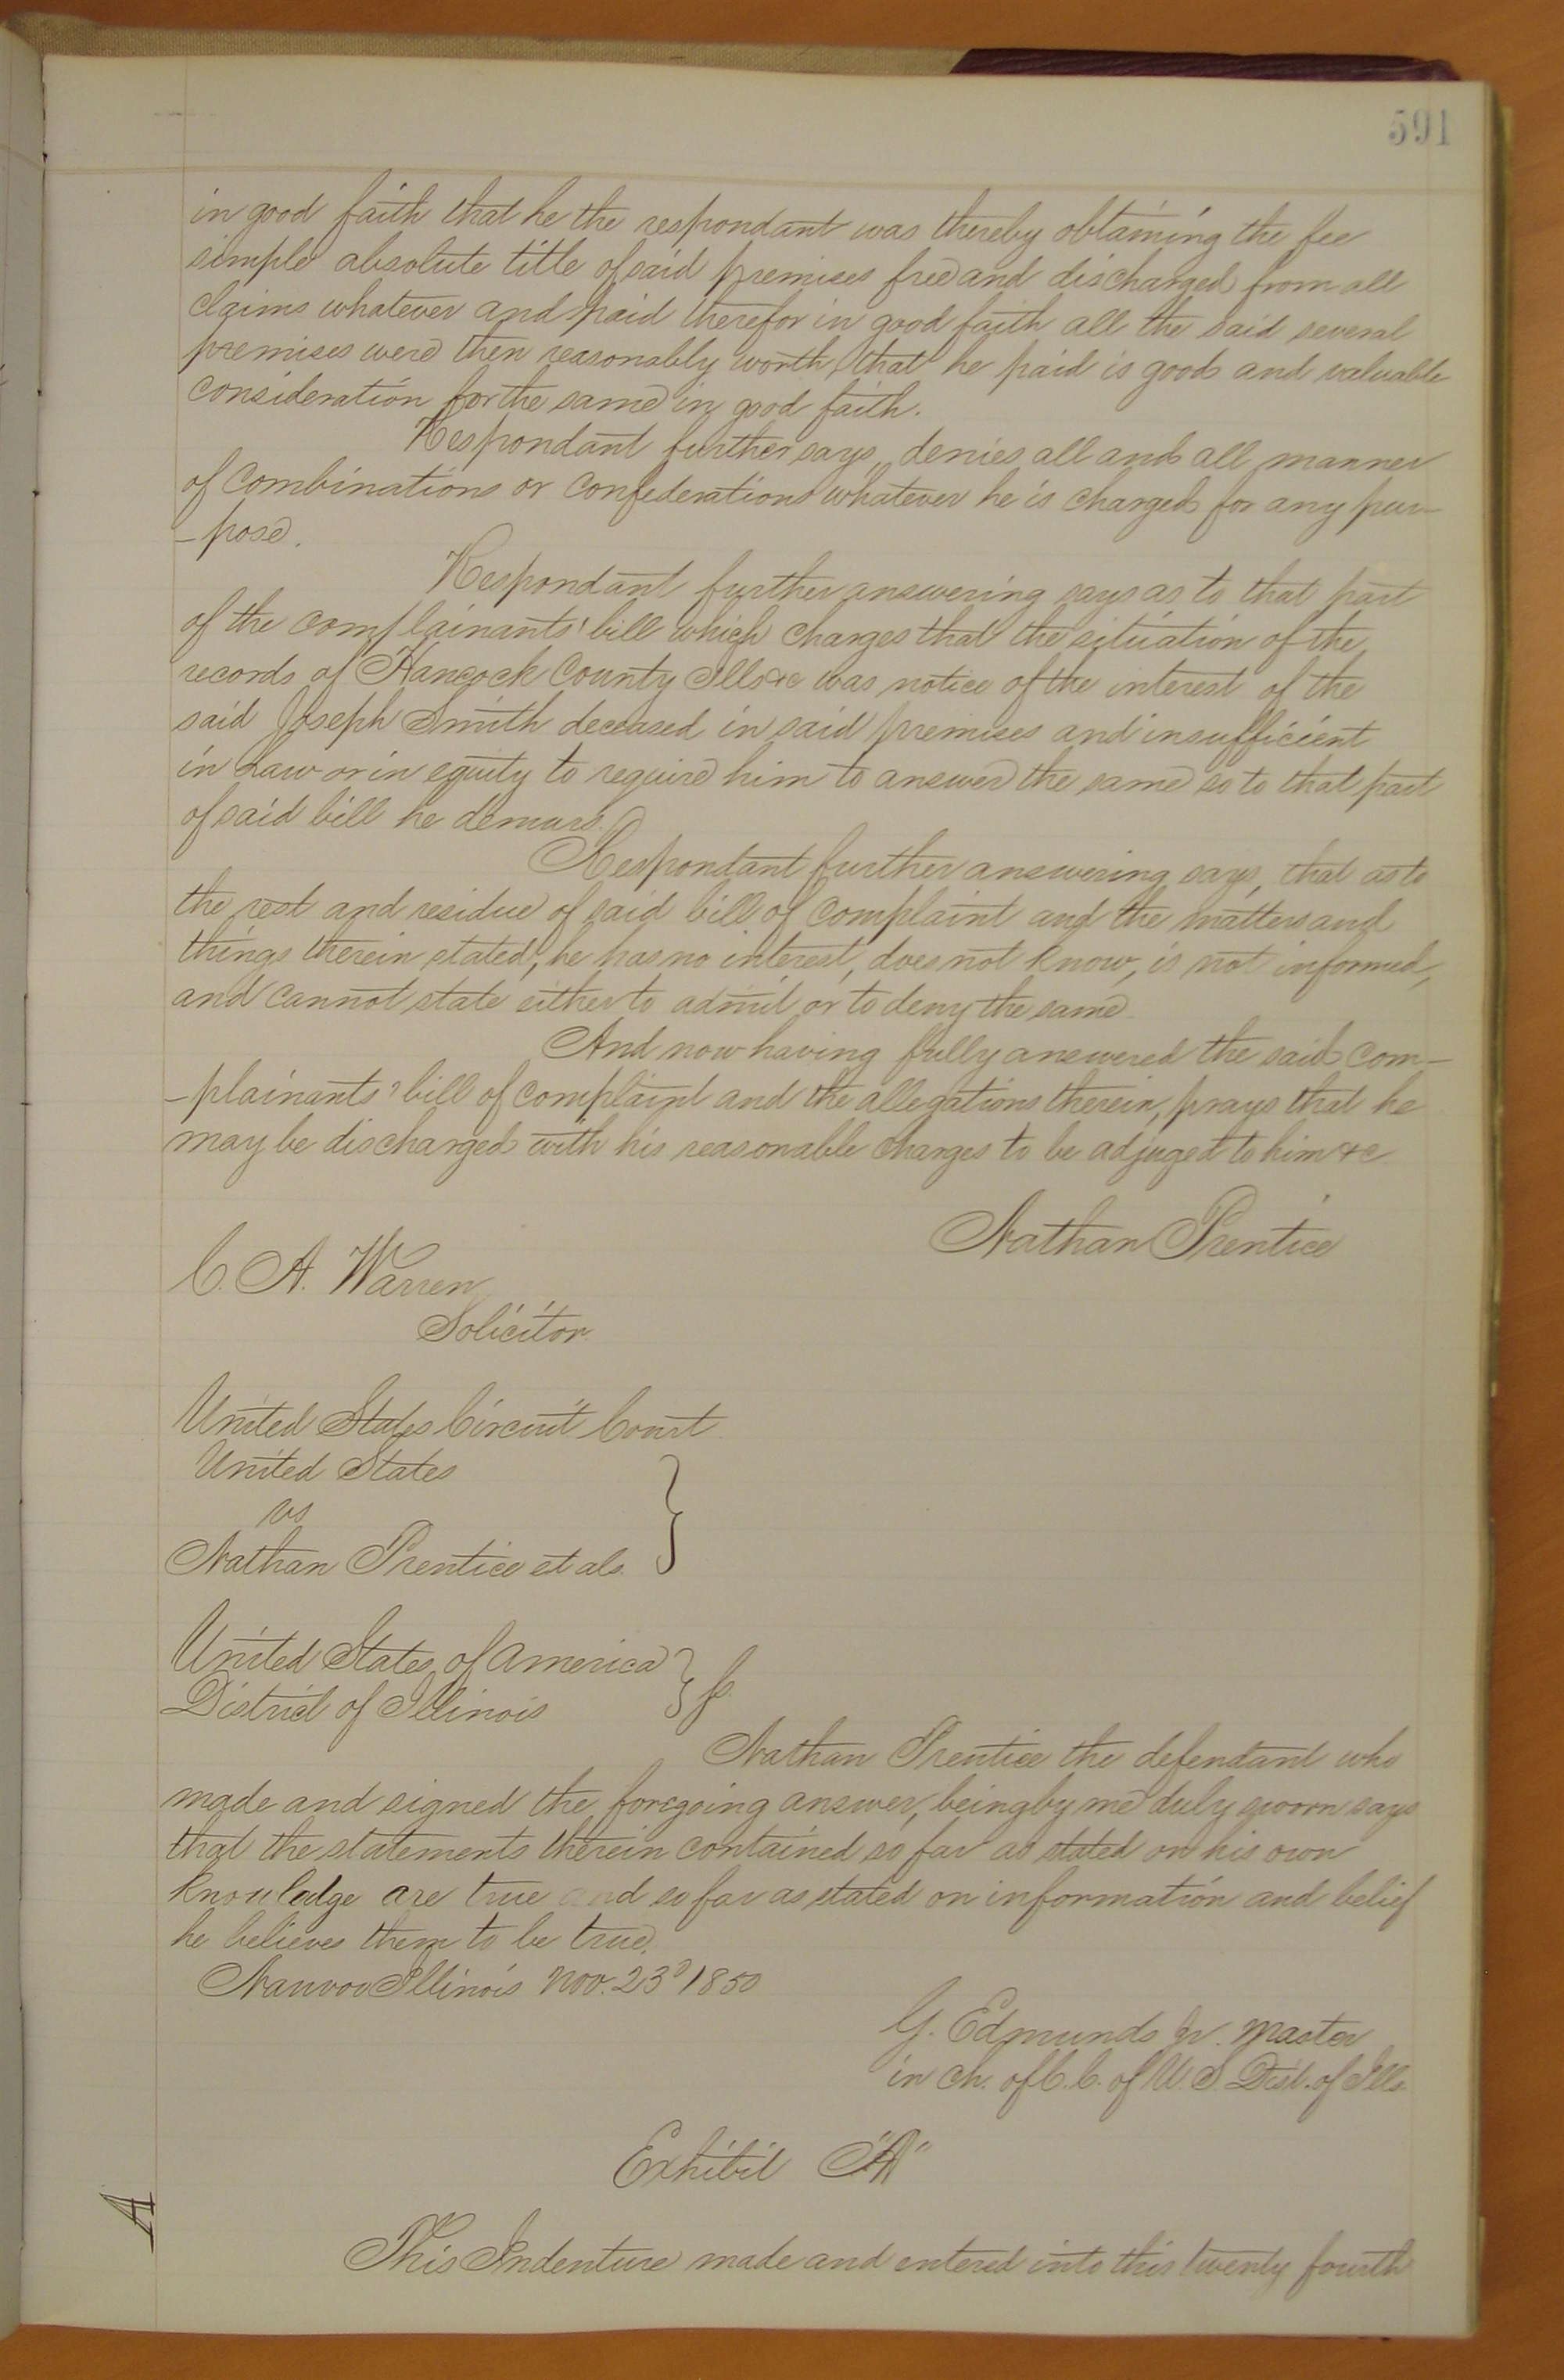 591
in good faith that he the respondant was thereby obtaining the fee
simple absolute title of said premises free and discharged from all
claims whatever and paid therefor in good faith all the said several
premises were then reasonably worth, that he paid is good and valuable
consideration for the same in good faith.
Respondant further says, denies all and all manner
of combinations or confederations whatever he is charged for any pur-
-pose.
Respondant further answering says as to that part
of the complainants' bill which charges that the situation of the
records of Hancock County Ills &c was notice of the interest of the
said Joseph Smith deceased in said premises and insufficient
in Law or in equity to require him to answer the same so to that part
of said bill he demurs.
Respondant further answering says, that as to
the rest and residue of said bill of complaint and the matters and
things therein stated, he has no interest, does not know, is not informed,
and cannot state either to admit or to deny the same.
And now having fully answered the said com-
-plainants' bill of complaint and the allegations therein, prays that he
may be discharged with his reasonable charges to be adjuged to him &c.
Nathan Prentice
C. A. Warren
Solicitor.
United States Circuit Court.
United States
vs
Nathan Prentice et als.
United States of America
District of Illinois
Nathan Prentice the defendant who
made and signed the foregoing answer, being by me duly sworn says
that the statements therein contained so far as stated on his own
knowledge are true and so far as stated on information and belief
he believes them to be true.
Nauvoo Illinois Nov. 23d 1850
G. Edmunds Jr. Master
in Ch. of C. C. of U. S. Dist. of Ills.
Exhibit "A"
A
This Indenture made and entered into this twenty fourth